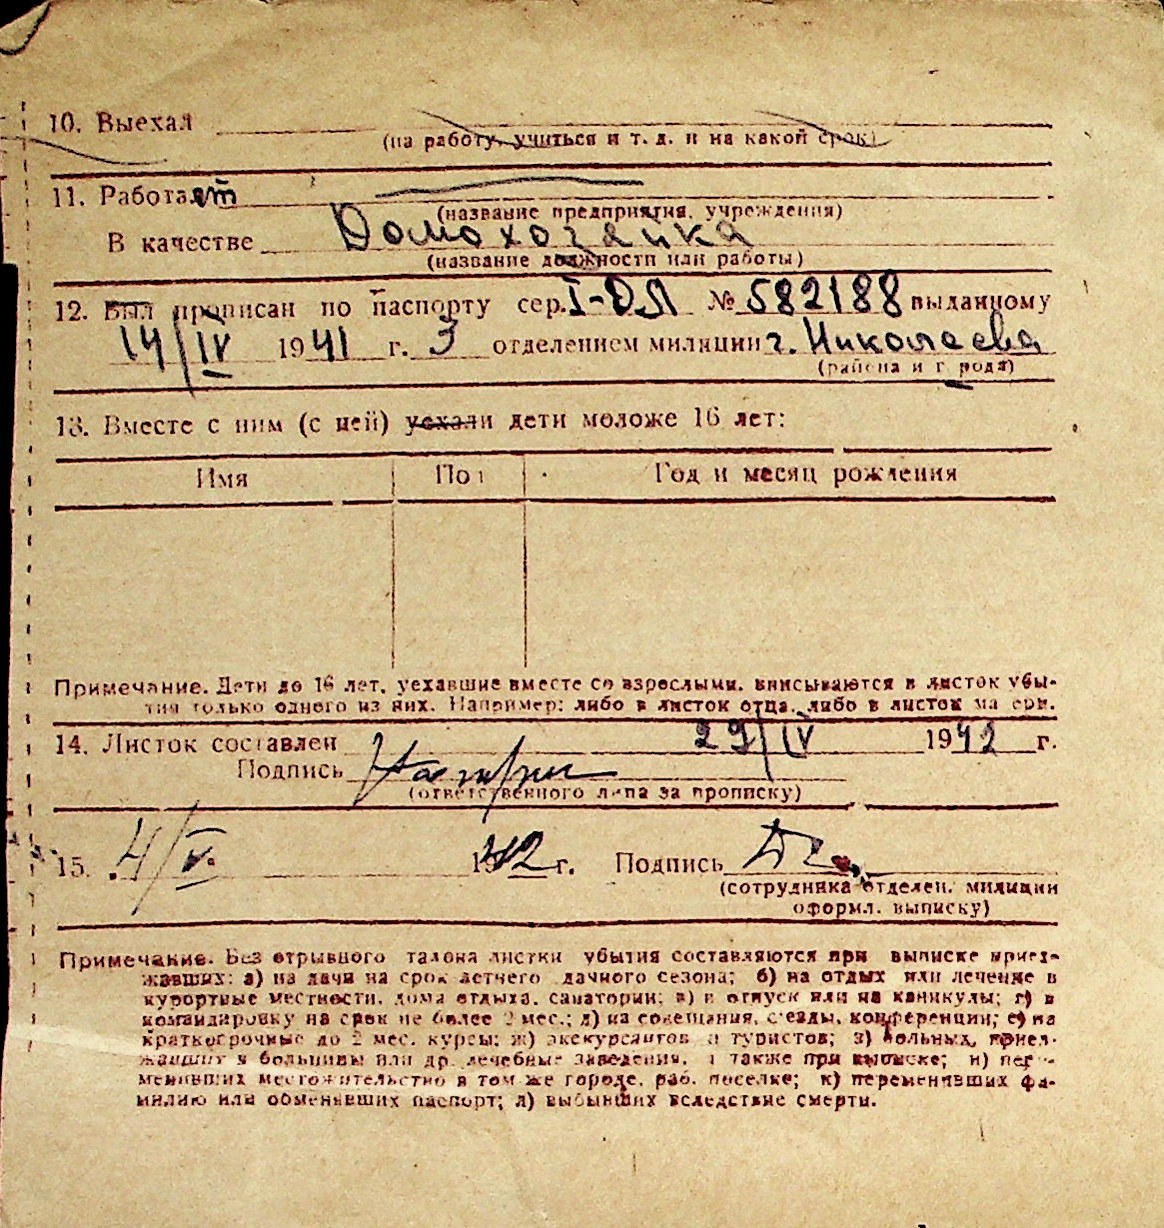 10. Выехал
(на работу, учиться и т. д. и на какой срок)
11. Работает
(название предприятия, учреждения)
В качестве Домохозяйка
(название должности или работы)
12. Был прописан по паспорту сер. I-ДЛ № 582188 выданному
14/IV 1941 г. 3 отделением милиции г. Николаева
(района и города)
13. Вместе с ним (с ней) уехали дети моложе 16 лет:
Имя Пол Год и месяц рождения
Примечание. Дети до 16 лет, уехавшие вместе со взрослыми, вписываются в листок убы-
тия только одного из них. Например: либо в листок отца, либо в листок матери.
14. Листок составлен 29/IV 1942 г.
Подпись
(ответственного лица за прописку)
15. 4/V 1942 г. Подпись
(сотрудника отделен. милиции
оформл. выписку)
Примечание. Без отрывного талона листки убытия составляются при выписке приез-
жавших: а) на дачи на срок летнего дачного сезона; б) на отдых или лечение в
курортные местности, дома отдыха, санатории; в) в отпуск или на каникулы; г) в
командировку на срок не более 2 мес.; д) на совещания, съезды, конференции; е) на
краткосрочные до 2 мес. курсы; ж) экскурсантов и туристов; з) больных, приез-
жавших в больницы или др. лечебные заведения, а также при выписке; и) пере-
менивших местожительство в том же городе, раб. поселке; к) переменявших фа-
милию или обменявших паспорт; л) выбывших вследствие смерти.